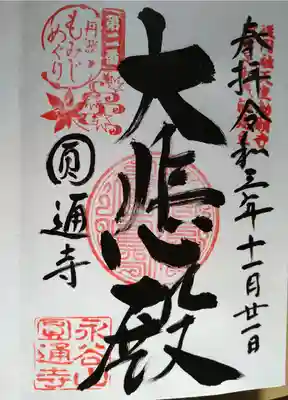 奉拝 令和三年十一月廿一日
大悲殿
第二番
丹波
もみじ
めぐり
圓通寺
永谷山
圓通寺